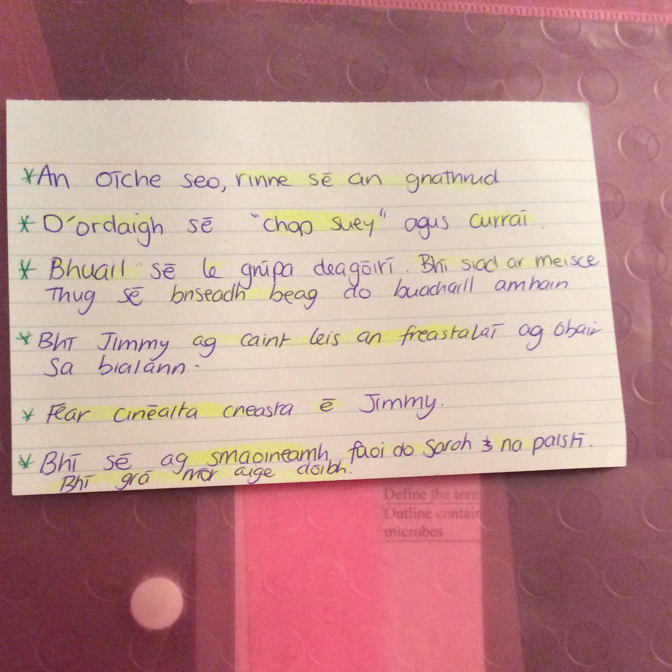 * An oīche seo, rinne sē an gnathrud
* D'ordaigh sē "chop suey" agus curraī.
* Bhuail sē le grūpa deagōirī. Bhī siad ar meisce
Thug sē briseadh beag do buachaill amhain
* Bhī Jimmy ag caint leis an freastalaī ag obair
sa bialann.
* Fēar cinēalta cneasta ē Jimmy.
* Bhī sē ag smaoineamh faoi do Sarah & na paistī.
Bhī grā mōr aige doibh.
Define the term
Outline contain
microbes